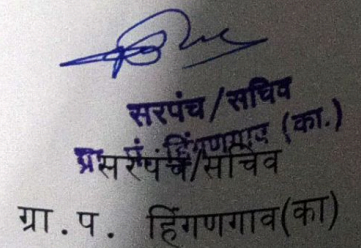 सरपंच/सचिव
ग्रा. पं. हिंगणगाव (का.)
सरपंच/सचिव
ग्रा.प. हिंगणगाव(का)